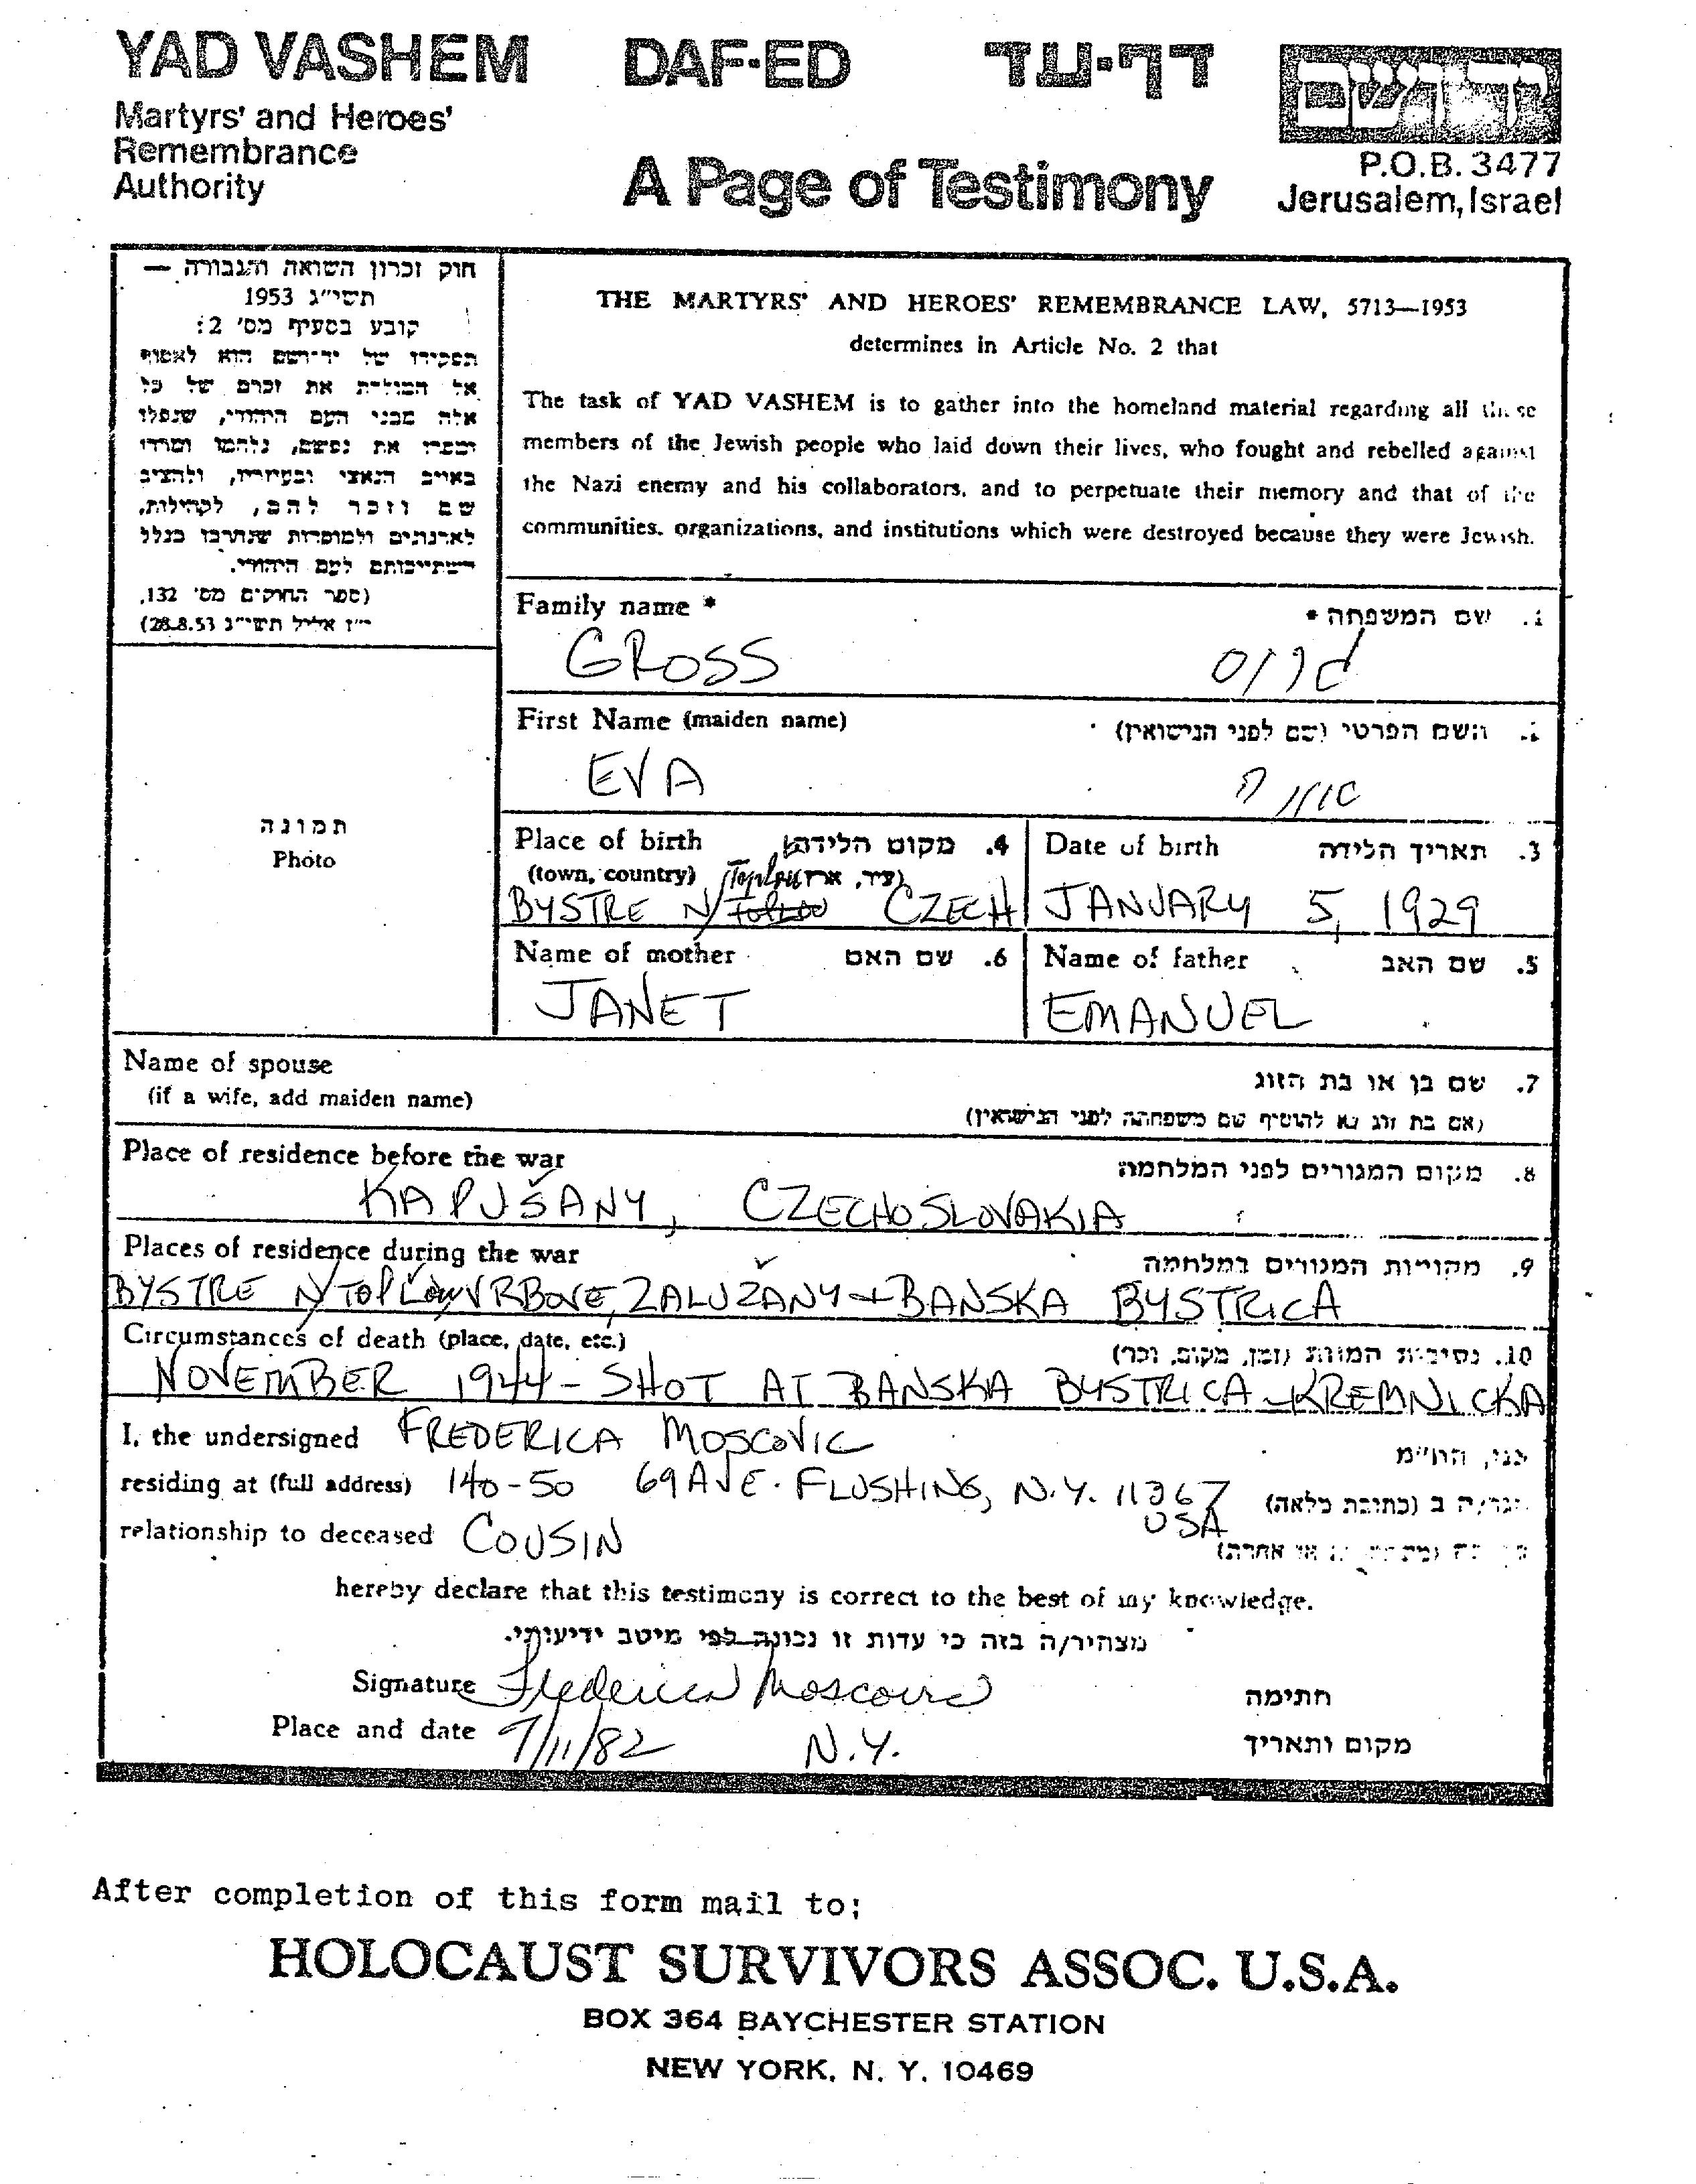 YAD VASHEM DAF-ED דף-עד
Martyrs' and Heroes'
Remembrance
Authority
A Page of Testimony
יד ושם
P.O.B. 3477
Jerusalem, Israel
חוק זכרון השואה והגבורה —
תשי״ג 1953
קובע בסעיף מס' 2:
תפקידו של יד-ושם הוא לאסוף
אל המולדת את זכרם של כל
אלה מבני העם היהודי, שנפלו
ומסרו את נפשם, נלחמו ומרדו
באויב הנאצי ובעוזריו, ולהציב
שם וזכר להם, לקהילות,
לארגונים ולמוסדות שנחרבו בגלל
השתייכותם לעם היהודי.
(ספר החוקים מס' 132,
י״ז אלול תשי״ג 28.8.53)
THE MARTYRS' AND HEROES' REMEMBRANCE LAW, 5713—1953
determines in Article No. 2 that
The task of YAD VASHEM is to gather into the homeland material regarding all those
members of the Jewish people who laid down their lives, who fought and rebelled against
the Nazi enemy and his collaborators, and to perpetuate their memory and that of the
communities, organizations, and institutions which were destroyed because they were Jewish.
Family name * 1. שם המשפחה *
GROSS גרוס
First Name (maiden name) 2. השם הפרטי (שם לפני הנישואין)
EVA
תמונה
Photo
Place of birth 4. מקום הלידה
(town, country) (עיר, ארץ)
BYSTRE N/ Toplou CZECH
Date of birth 3. תאריך הלידה
JANUARY 5, 1929
Name of mother 6. שם האם
JANET
Name of father 5. שם האב
EMANUEL
Name of spouse 7. שם בן או בת הזוג
(if a wife, add maiden name) (אם בת זוג נא להוסיף שם משפחתה לפני הנישואין)
Place of residence before the war 8. מקום המגורים לפני המלחמה
KAPUŠANY, CZECHOSLOVAKIA
Places of residence during the war 9. מקומות המגורים במלחמה
BYSTRE N/ TOPLOU VRBOVE, ZALUŽANY + BANSKA BYSTRICA
Circumstances of death (place, date, etc.) 10. נסיבות המוות (זמן, מקום, וכו')
NOVEMBER 1944 - SHOT AT BANSKA BYSTRICA - KREMNICKA
I, the undersigned FREDERICA MOSCOVIC אני, הח״מ
residing at (full address) 140-50 69 AVE. FLUSHING, N.Y. 11367 USA הגר/ה ב (כתובת מלאה)
relationship to deceased COUSIN
hereby declare that this testimony is correct to the best of my knowledge.
מצהיר/ה בזה כי עדות זו נכונה לפי מיטב ידיעותי.
Signature Frederica Moscovic חתימה
Place and date 7/11/82 N.Y. מקום ותאריך
After completion of this form mail to;
HOLOCAUST SURVIVORS ASSOC. U.S.A.
BOX 364 BAYCHESTER STATION
NEW YORK, N. Y. 10469